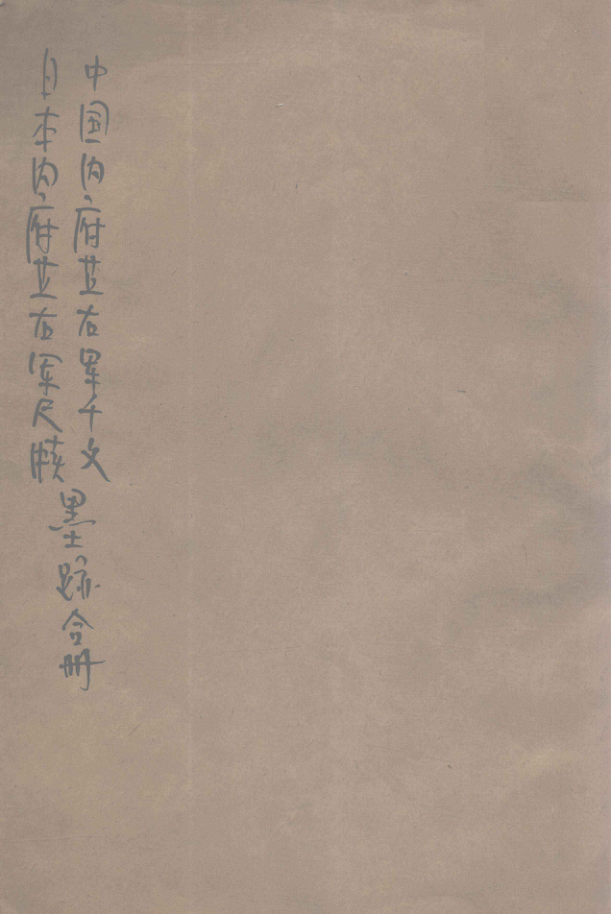 中国内府并右军千文
日本内府并右军尺牍
墨跡合册